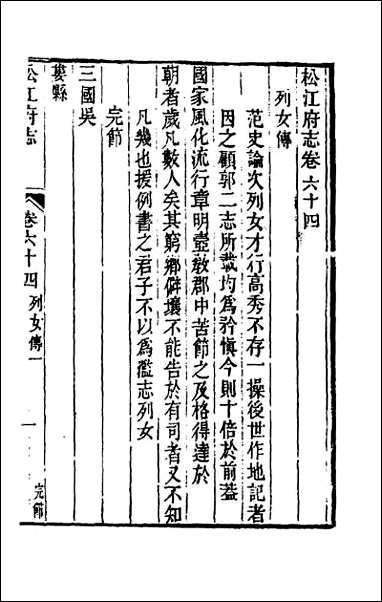 松江府志卷六十四
列女傳
范史論次列女才行高秀不存一操後世作地記者
因之顧郭二志所載均爲矜愼今則十倍於前葢
國家風化流行章明壼敎郡中苦節之及格得達於
朝者歲凡數人矣其窮鄉僻壤不能告於有司者又不知
凡幾也援例書之君子不以爲濫志列女
完節
三國吳
婁縣
松江府志
卷六十四 列女傳一
一
完節